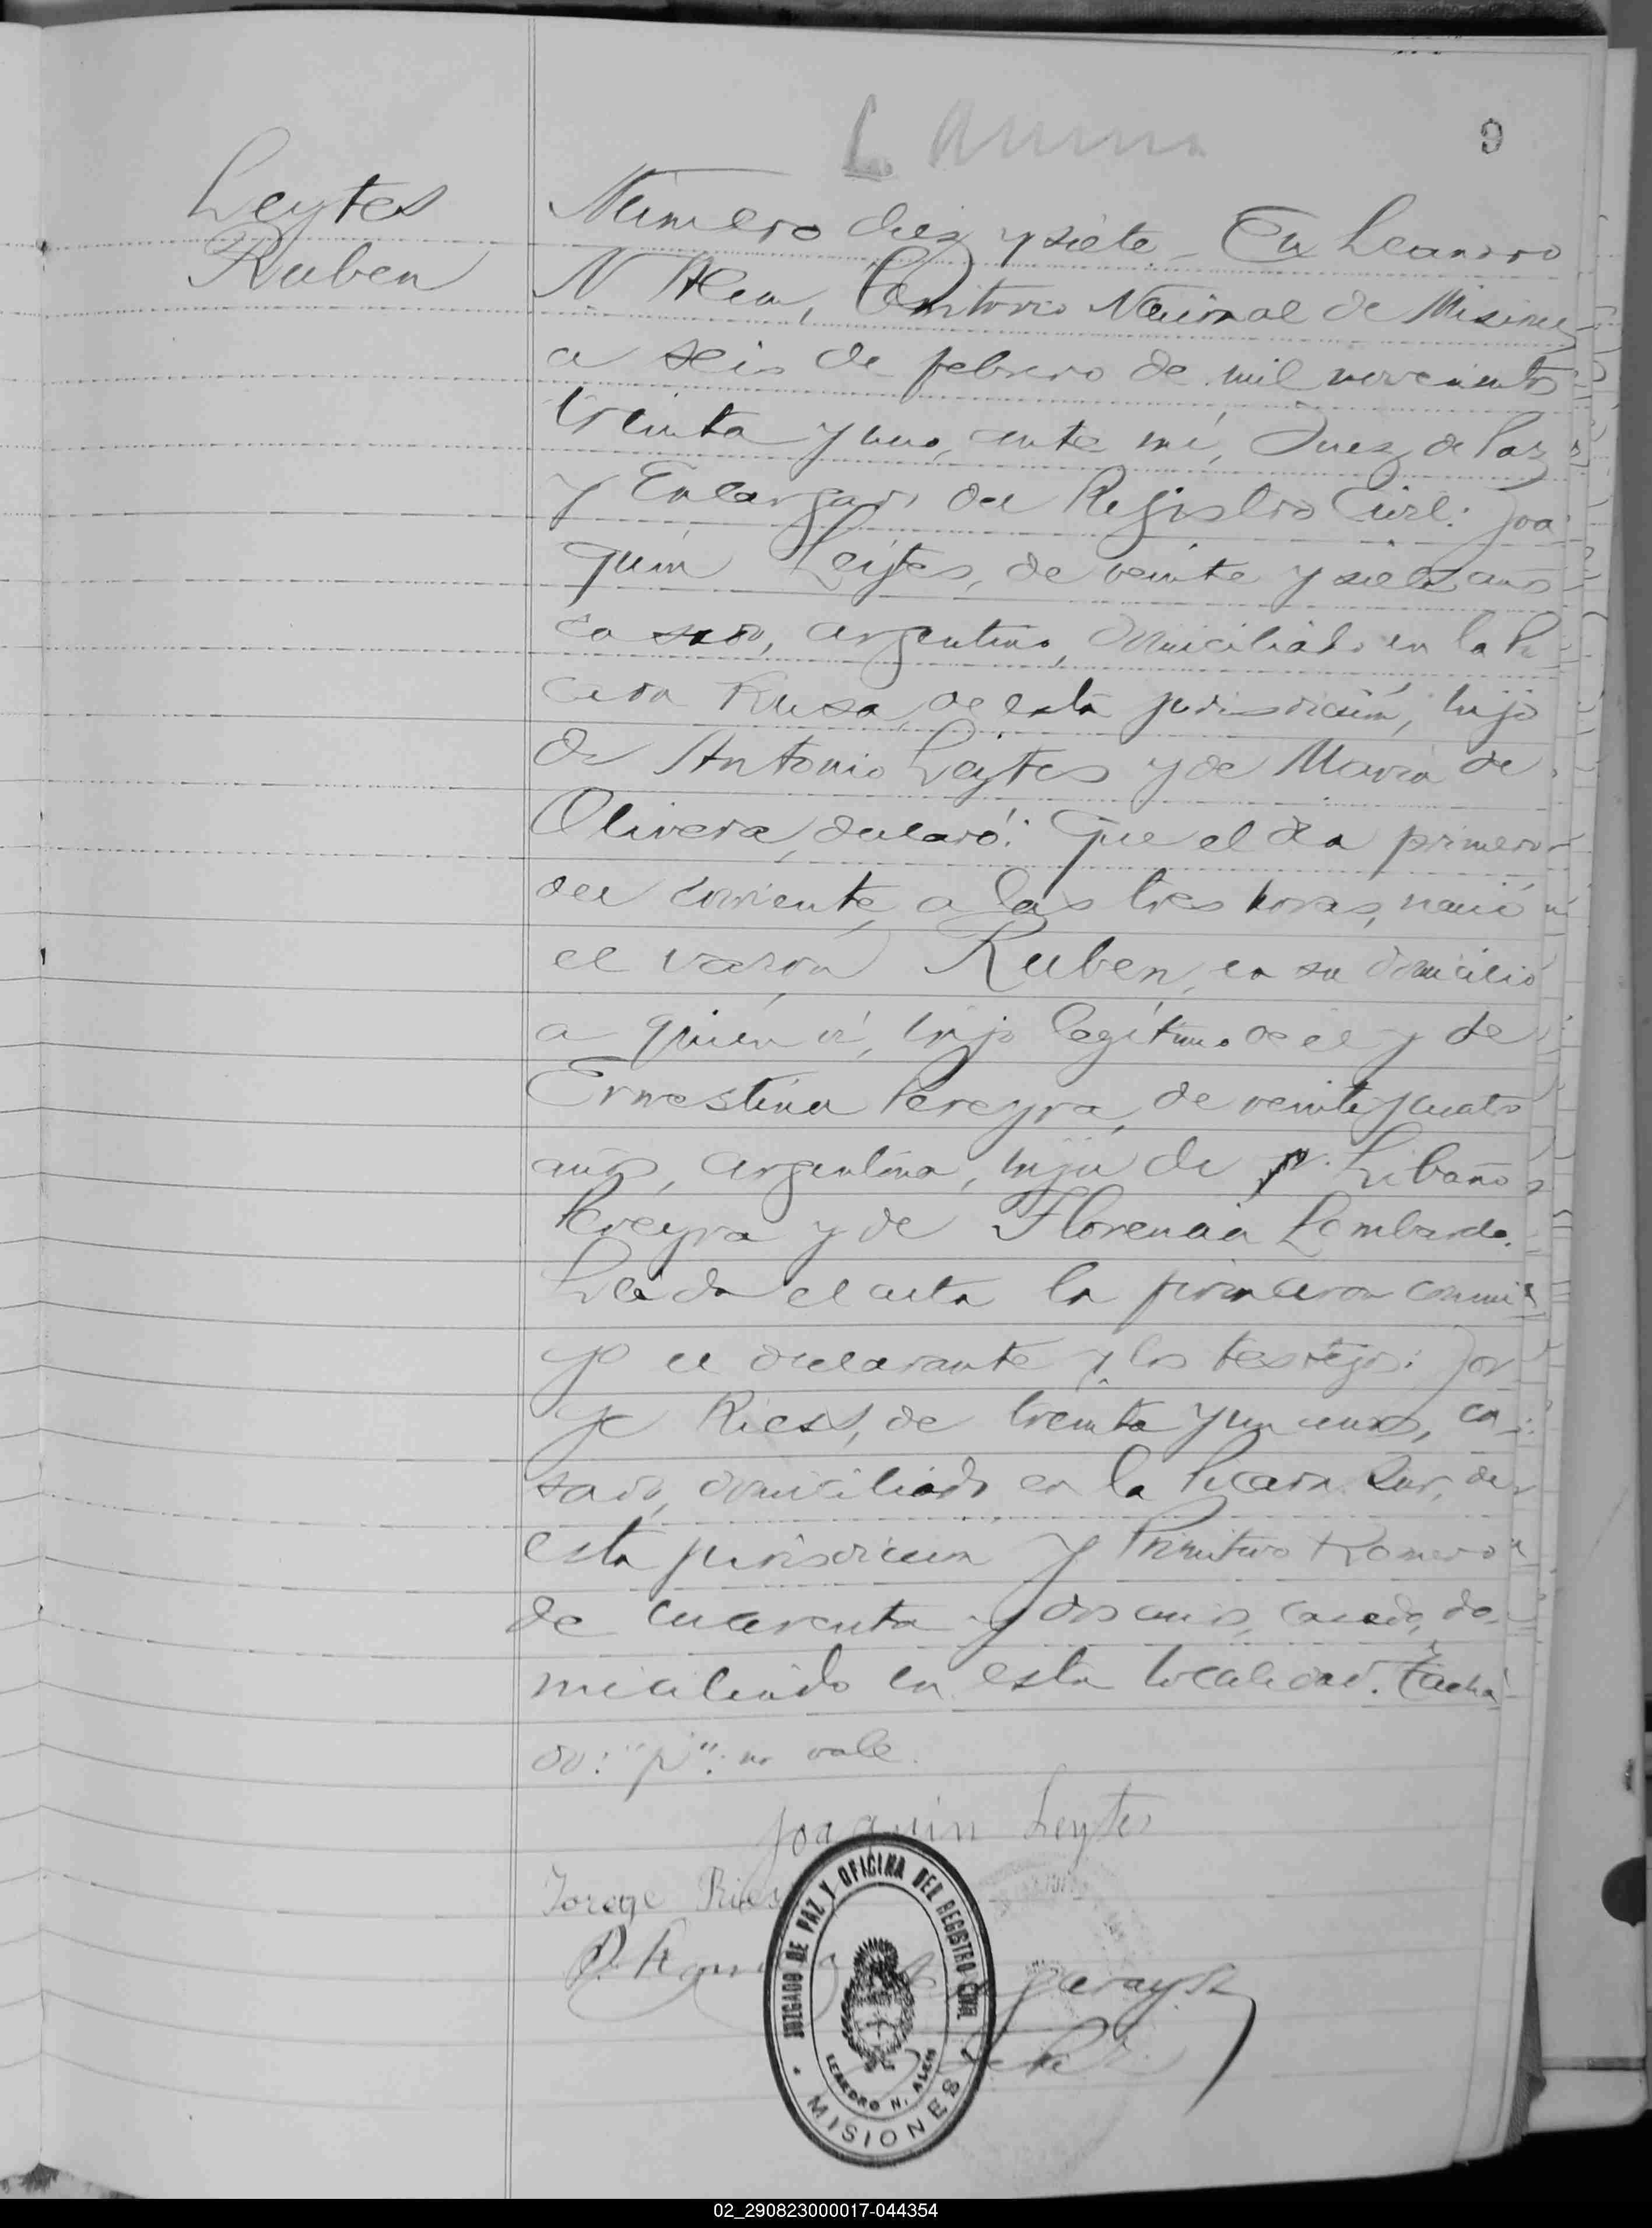 9
Leytes
Ruben
Número diez y siete - En Leandro
N Alem, Territorio Nacional de Misiones
a seis de febrero de mil novecientos
treinta y uno, ante mí, Juez de Paz
y Encargado del Registro Civil: Joa
quin Leytes, de veinte y siete años
casado, argentino, domiciliado en la Pi
cada Rusa, de esta jurisdicción, hijo
de Antonio Leytes y de María de
Olivera, declaró: Que el día primero
del corriente, a las tres horas, nació
el varón Ruben, en su domicilio
a quién ví, hijo legítimo de él y de
Ernestina Pereyra, de veinte y cuatro
años, argentina, hija de p. Libaño
Pereyra y de Florencia Lombardo.
Leída el acta la firmaron conmi
go el declarante y los testigos: Jor
ge Riess, de treinta y un años, ca
sado, domiciliado en la Picada Sur, de
esta jurisdicción y Primitivo Romero
de cuarenta y dos años, casado, do
miciliado en esta localidad. Tacha
do: "p": no vale.
Joaquin Leytes
Jorege Ries
P. Romero
JUZGADO DE PAZ Y OFICINA DEL REGISTRO CIVIL
LEANDRO N. ALEM
MISIONES
02_290823000017-044354